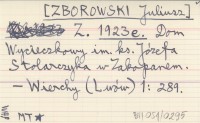 [ZBOROWSKI Juliusz]
Z. 1923 e. Dom
Wycieczkowy im. ks. Józefa
Stolarczyka w Zakopanem.
- Wierchy (Lwów) 1: 289.
MT*
BJ1-051/0295